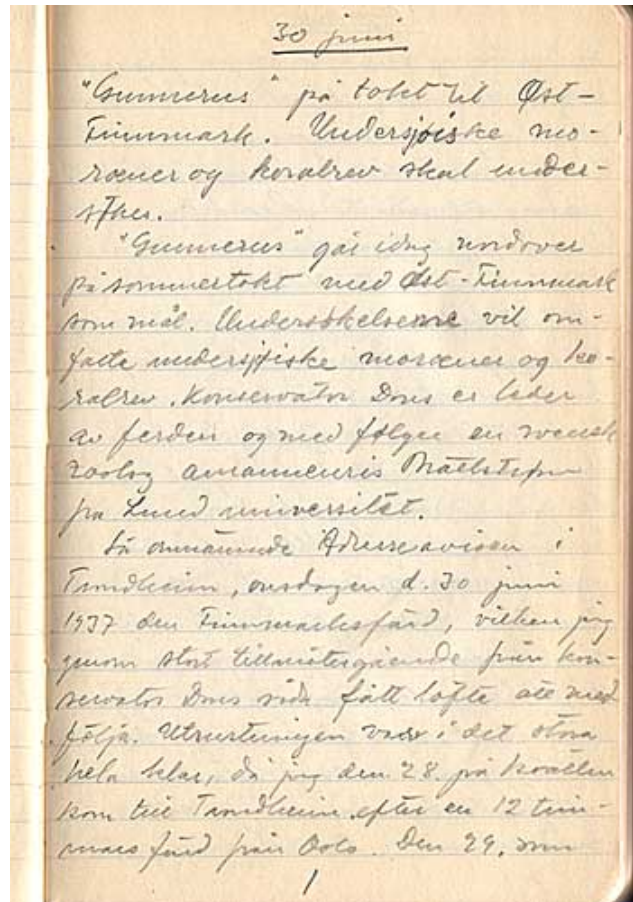 30 juni
"Gunnerus" på tokt til Øst-
Finnmark. Undersjøiske mo-
ræner og koralrev skal under-
søkes.
"Gunnerus" går idag nordover
på sommertokt med Øst-Finnmark
som mål. Undersøkelserne vil om-
fatte undersjøiske moræner og ko-
ralrev. Konservator Dons er leder
av ferden og med følger en svensk
zoolog amanuensis
fra Lund universitet.
Så omnämnde Adresseavisen i
Trondheim, onsdagen d. 30 juni
1937 den Finnmarksfärd, vilken jag
genom stort tillmötesgående från kon-
servator Dons sida fått löfte att med
följa. Utrustningen var i det stora
hela klar, då jag den 28. på kvällen
kom till Trondheim efter en 12 tim-
mars färd från Oslo. Den 29. som
1